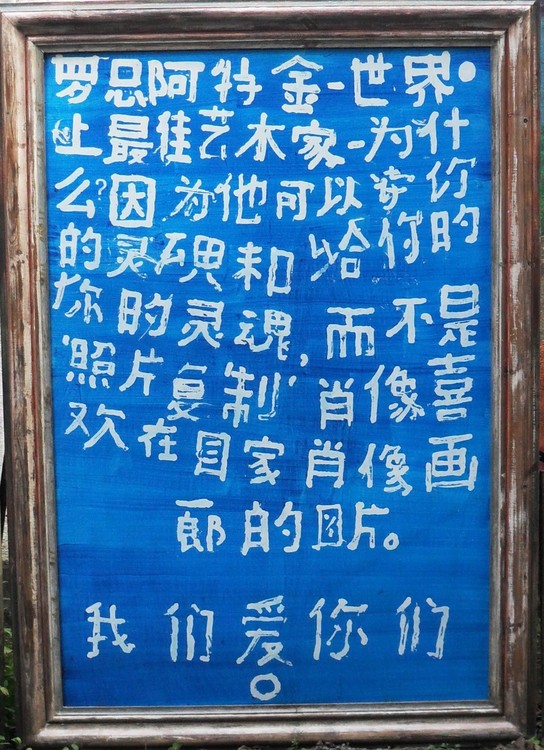 罗总阿特金-世界·
上最佳艺术家-为什
么?因为他可以读你
的灵魂和给你的
你的灵魂,而不是
照片复制'肖像喜
欢在目家肖像画
郎的图片。
我们爱你们
。